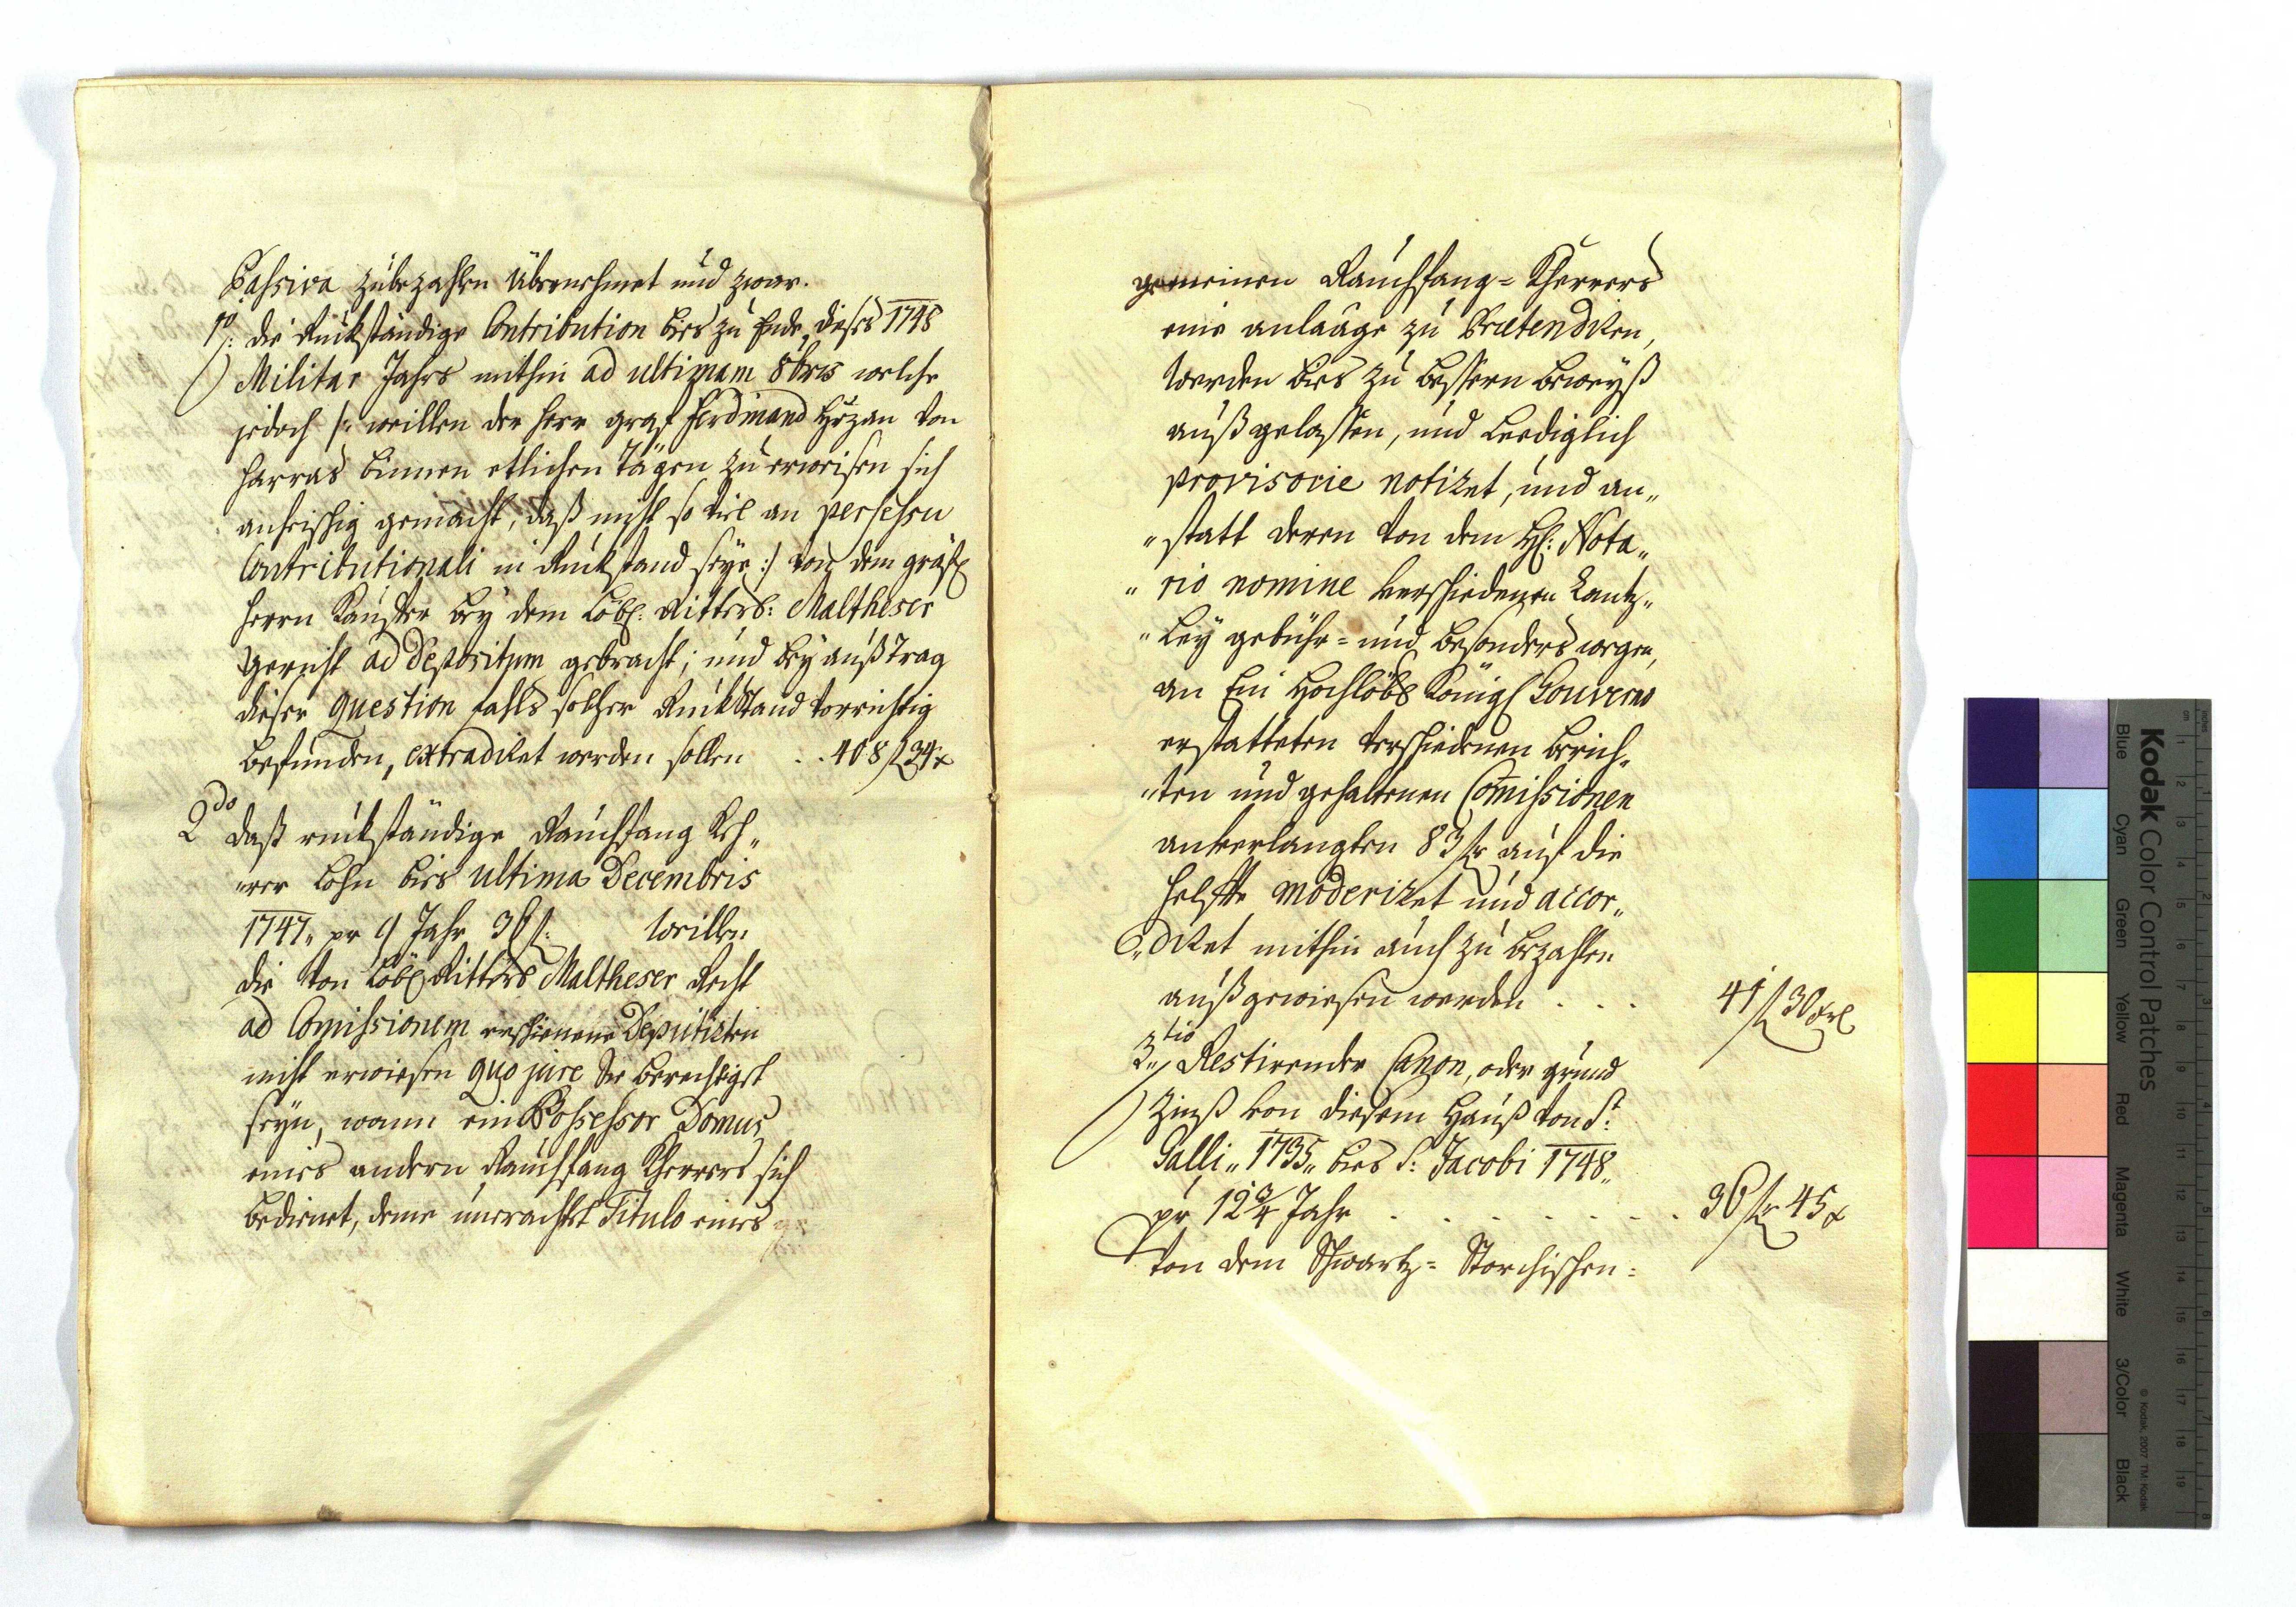 Passiva zubezahlen übernehmet und zwar.
1º: die Rückständige Contribution bies zu Ende dieses 1748
Militar Jahrs mithin ad ultimam 8bris welche
jedoch /: weillen der Herr graf Ferdinand Hÿzan von
Harras binnen etlichen Tägen zu erweisen sich
anheischig gemacht, daß nicht so viel an
Contributionali in Rückstand seÿe :/ von dem gräfl
Herrn Kauffer beÿ dem Löbl: Ritterl: Maltheser
gericht ad Depositum gebracht; und beÿ außtrag
dieser question fahls solcher Rückstand vor richtig
befunden, extradiret werden sollen . . 408 f 34 x
2do daß rückständige Rauchfang Keh„
„rer Lohn bies ultima Decembris
1747„ pr 9 Jahr 36 f: Weillen
die von Löbl Ritterl Maltheser Recht
ad Comissionem erschienene Deputirten
nicht erwiesen quo jure Sie berechtiget
seÿn, wann ein Possessor Domus
eines andern Rauchfang Kherers sich
bedienet, deme unerachtet Titulo eines
gemeinen Rauchfang= Kherers
eine anlaage zu Prætendiren,
Werden bies zu bessern beweÿß
außgelassen, und Lediglich
provisorie notiret, und an„
„statt deren von dem H: Nota„
„rio nomine verschiedenen Cantz„
„leÿ gebühr= und besonders wegen,
an Ein Hochlöbl Königl Gouverno
erstatteten verschiedenen berich„
„ten und gehaltenen Comissionen
anverlangten 83 f auf die
helffte moderiret und accor„
„diret mithin auch zu bezahlen
außgewiesen werden . . . 41 f 30 xl
3tio Restirender Canon, oder grund
Zinß von diesem Hauß von St:
Galli„ 1735„ bies S: Jacobi 1748„
pr 12 3/4 Jahr . . . . . . . 36 f 45 x
Von dem Schwartz= Storchischen=